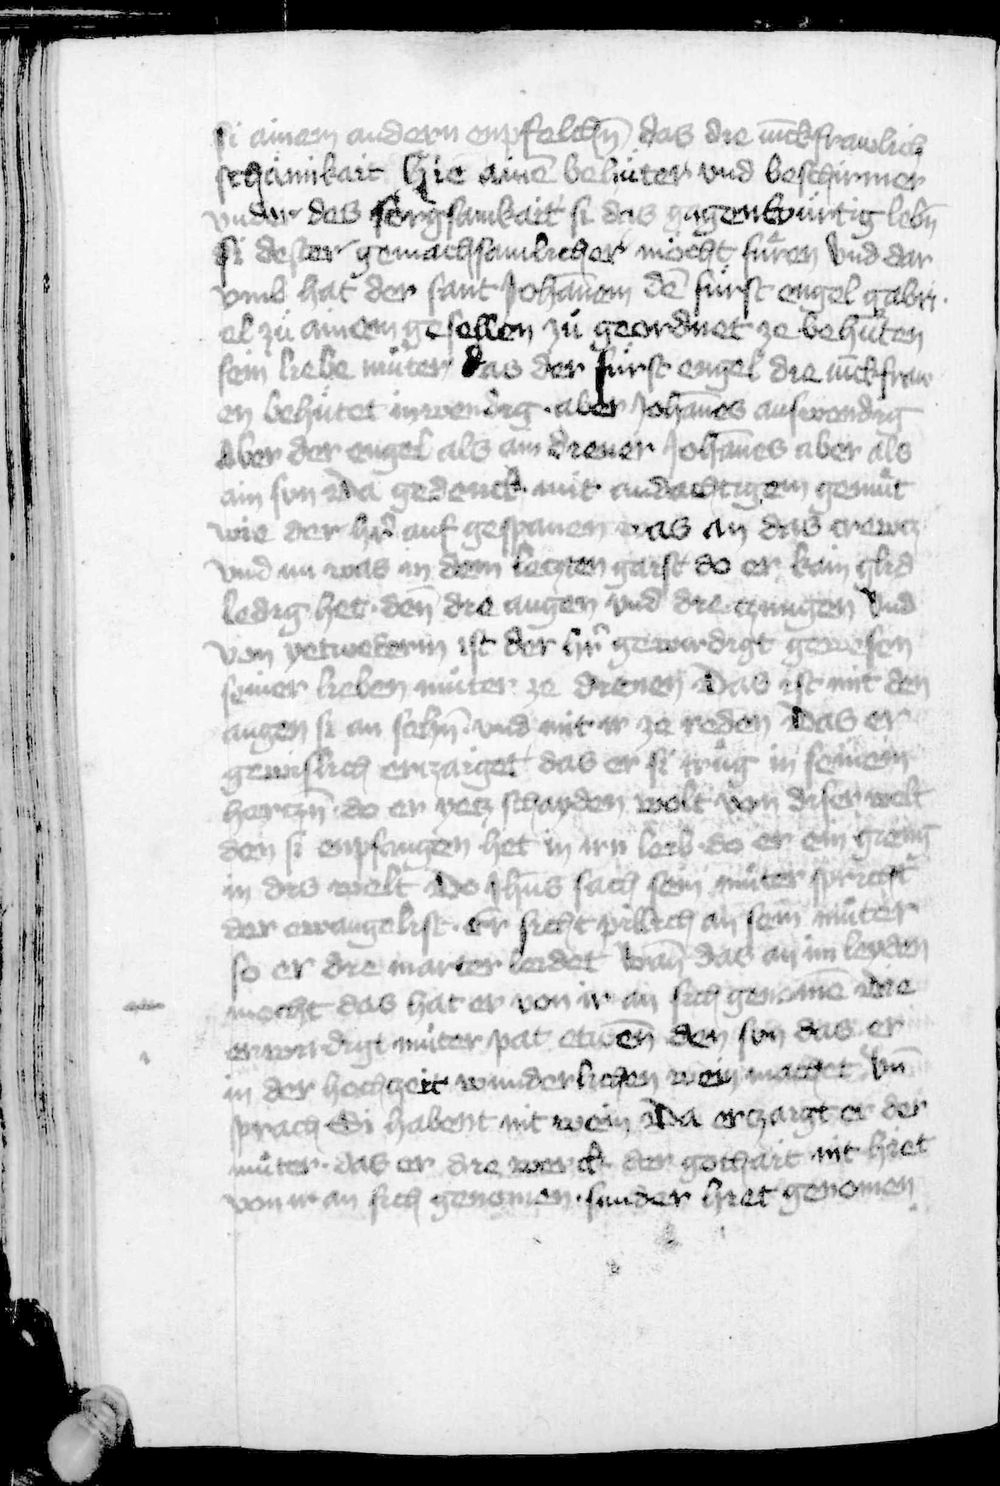 si ainem andern enpfelchn̄ das die iūckfrawlich
schamikait Hie ainē behüter vnd beschirmer
vnder des sorgsamkait si das gagenbürtig lebn̄
si dester gemachsamlicher möcht füren Vnd dar
vmb hat der sant Johānem dē fürst engel gabri
el zů ainem gesellen zů geordnet ze behüten
sein liebe můter das der fürst engel die iūckfraw
en behütet inwendig · aber Johānes auswendig
Aber der engel als ain diener Johānes aber als
ain sun Da gedenck mit andachtigem gemůt
wie der hr̄ auf gespanen was an das crewcz
vnd nu was in dem letzten gaist do er kain glid
ledig het · den̄ die augen vnd die czungen Vnd
von yetwederm ist der hr̄ gewirdigt gewesen
seiner lieben můter ze dienen Das ist mit den
augen si an sehn̄ · vnd mit ir ze reden Das er
gewislich erczaiget das er si trůg in seinem
herczn̄ · do er yetz schayden wolt von diser welt
den si enpfangen het in irn leib · do er ein gieng
in dis welt Do Jhūs sach sein můter spricht
der ewangelist · Er sicht pillich an sein můter
so er die marter leidet Wan̄ das an im leyden
mocht das hat er von ir an sich genomē Die
erwirdigt můter pat etwen̄ den sun das er
in der hochzeit wunderlichen wein machet Vn̄
sprach Si habent nit wein Da erczaigt er der
můter · das er die werck der gothait nit hiet
von ir an sich genomen · sunder hiet genomen